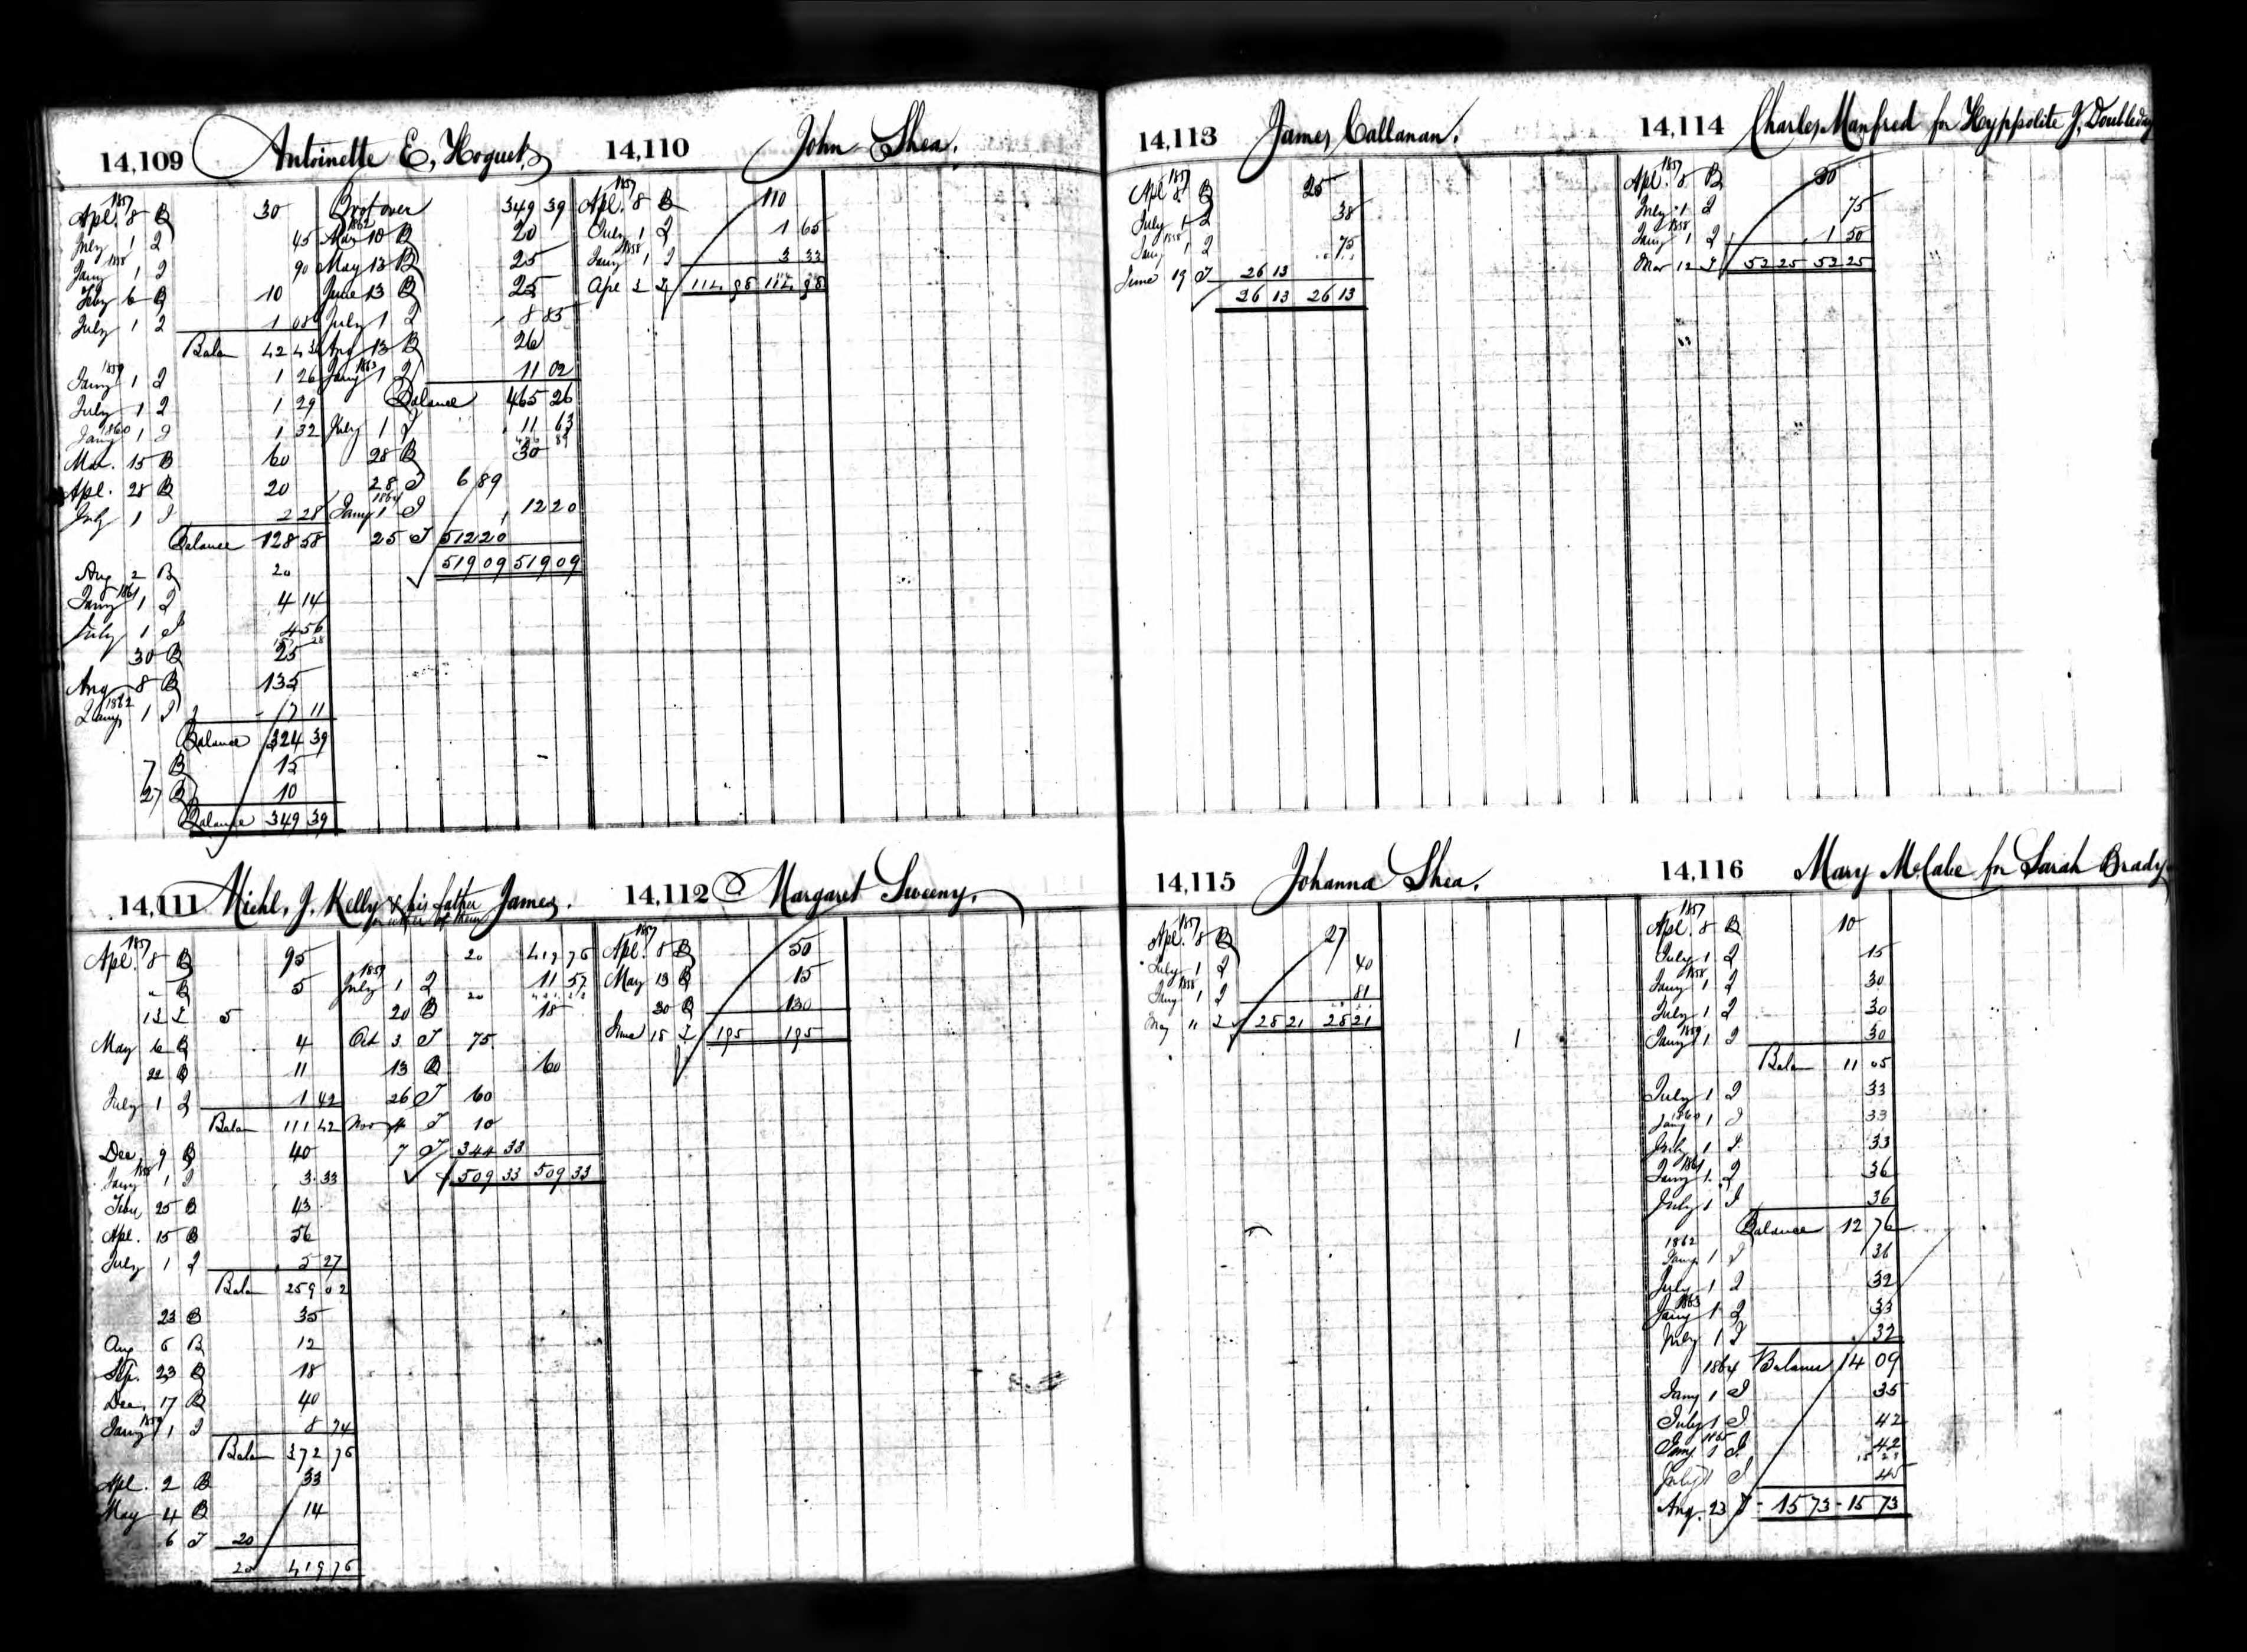 14,109 Antoinette E. Hoguet
1857
Apl. 8 B 30
July 1 I 45
1858
Jany 1 I 90
Feby 6 B 10
July 1 I 1 08
Balan 42 43
1859
Jany 1 I 1 26
July 1 I 1 29
1860
Jany 1 I 1 32
Mar. 15 B 60
Apl. 28 B 20
July 1 I 2 28
Balance 128 58
Aug 2 B 20
1861
Jany 1 I 4 14
July 1 I 4 56
157 28
30 B 25
Aug 8 B 135
1862
Jany 1 I 7 11
Balance 324 39
7 B 15
27 B 10
Balance 349 39
Brot over 349 39
1862
Mar 10 B 20
May 13 B 25
June 13 B 25
July 1 I 8 85
Aug 13 B 26
1863
Jany 1 I 11 02
Balance 465 26
July 1 I 11 63
476 89
28 B 30
28 I 6 89
1864
Jany 1 I 12 20
25 I 512 20
519 09 519 09
14,110 John Shea.
1857
Apl. 8 B 110
July 1 I 1 65
1858
Jany 1 I 3 33
Apl 3 I 114 98 114 98
14,111 Michl. J. Kelly & his father James.
or either of them
1857
Apl. 8 B 95
" B 5
13 I 5
May 6 B 4
22 B 11
July 1 I 1 42
Balan 111 42
Dec 9 B 40
1858
Jany 1 I 3 33
Feby 25 B 43
Apl. 15 B 56
July 1 I 5 27
Balan 259 02
23 B 35
Aug 6 B 12
Sep. 23 B 18
Dec. 17 B 40
1859
Jany 1 I 8 74
Balan 372 76
Apl. 2 B 33
May 4 B 14
6 I 20
20 419 76
20 419 76
1859
July 1 I 11 57
20 B 18
Oct 3 I 75
13 B 60
26 I 60
Nov 4 I 10
7 I 344 33
509 33 509 33
14,112 Margaret Sweeny.
1857
Apl. 8 B 50
May 13 B 15
30 B 130
June 15 I 195 195
14,113 James Callanan.
1857
Apl 8 B 25
July 1 I 38
1858
Jany 1 I 75
June 19 I 26 13
26 13 26 13
14,114 Charles Manfred for Hyppolite J. Doubleday
1857
Apl. 8 B 50
July 1 I 75
1858
Jany 1 I 1 50
Mar 12 I 52 25 52 25
14,115 Johanna Shea.
1857
Apl. 8 B 27
July 1 I 40
1858
Jany 1 I 81
May 11 I 28 21 28 21
14,116 Mary McCabe for Sarah Brady
1857
Apl. 8 B 10
July 1 I 15
1858
Jany 1 I 30
July 1 I 30
1859
Jany 1 I 30
Balan 11 05
July 1 I 33
1860
Jany 1 I 33
July 1 I 33
1861
Jany 1 I 36
July 1 I 36
Balance 12 76
1862
Jany 1 I 36
July 1 I 32
1863
Jany 1 I 33
July 1 I 32
1864 Balance 14 09
Jany 1 I 35
July 1 I 42
1865
Jany 1 I 42
15 28
July 1 I 45
Aug. 23 I 15 73 15 73